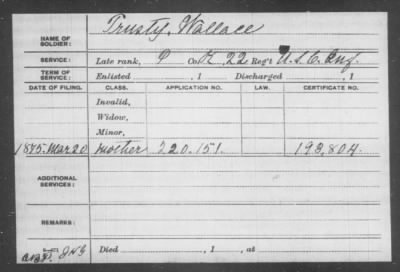 NAME OF SOLDIER: Trusty, Wallace
SERVICE: Late rank, P Co. K, 22 Reg't U.S.C. Inf.
TERM OF SERVICE: Enlisted , 1 Discharged , 1
DATE OF FILING. CLASS. APPLICATION NO. LAW. CERTIFICATE NO.
Invalid,
Widow,
Minor,
1875. Mar 20 Mother 220.151. 193,804.
ADDITIONAL SERVICES:
REMARKS:
Died , 1 , at